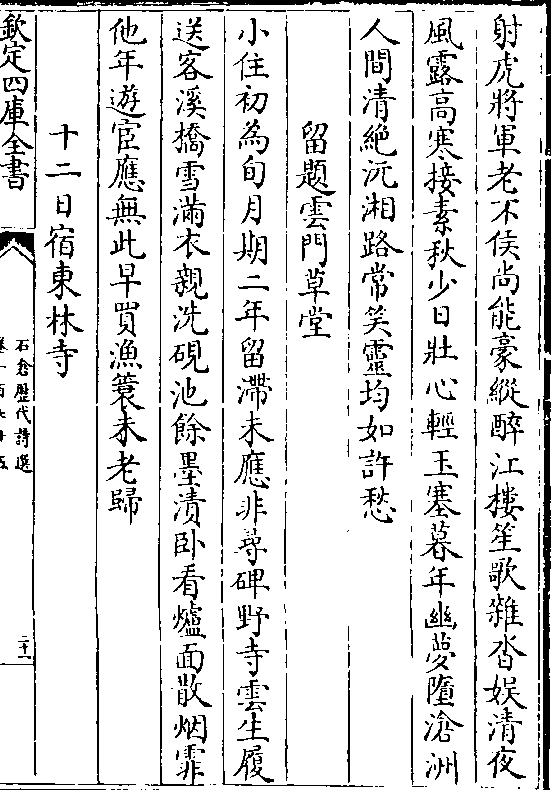 射虎將軍老不侯尚能豪縱醉江樓笙歌雜沓娱清夜
風露高寒接素秋少日壯心輕玉塞暮年幽夢墮滄洲
人間清絶沅湘路常笑靈均如許愁
留題雲門草堂
小住初為旬月期二年留滯未應非尋碑野寺雲生履
送客溪橋雪滿衣親洗硯池餘墨漬卧看爐面散烟霏
他年遊宦應無此早買漁簑未老歸
十二日宿東林寺
欽定四庫全書
石倉歴代詩選
二十一